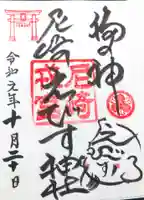 福の神
えびす
尼崎えびす神社
令和元年十月二十日